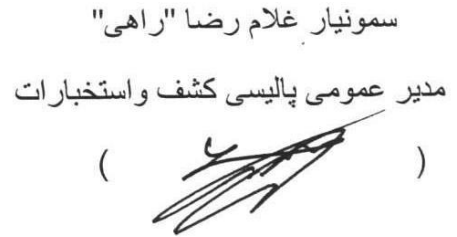 سمونیار غلام رضا "راهی"
مدیر عمومی پالیسی کشف واستخبارات
( )